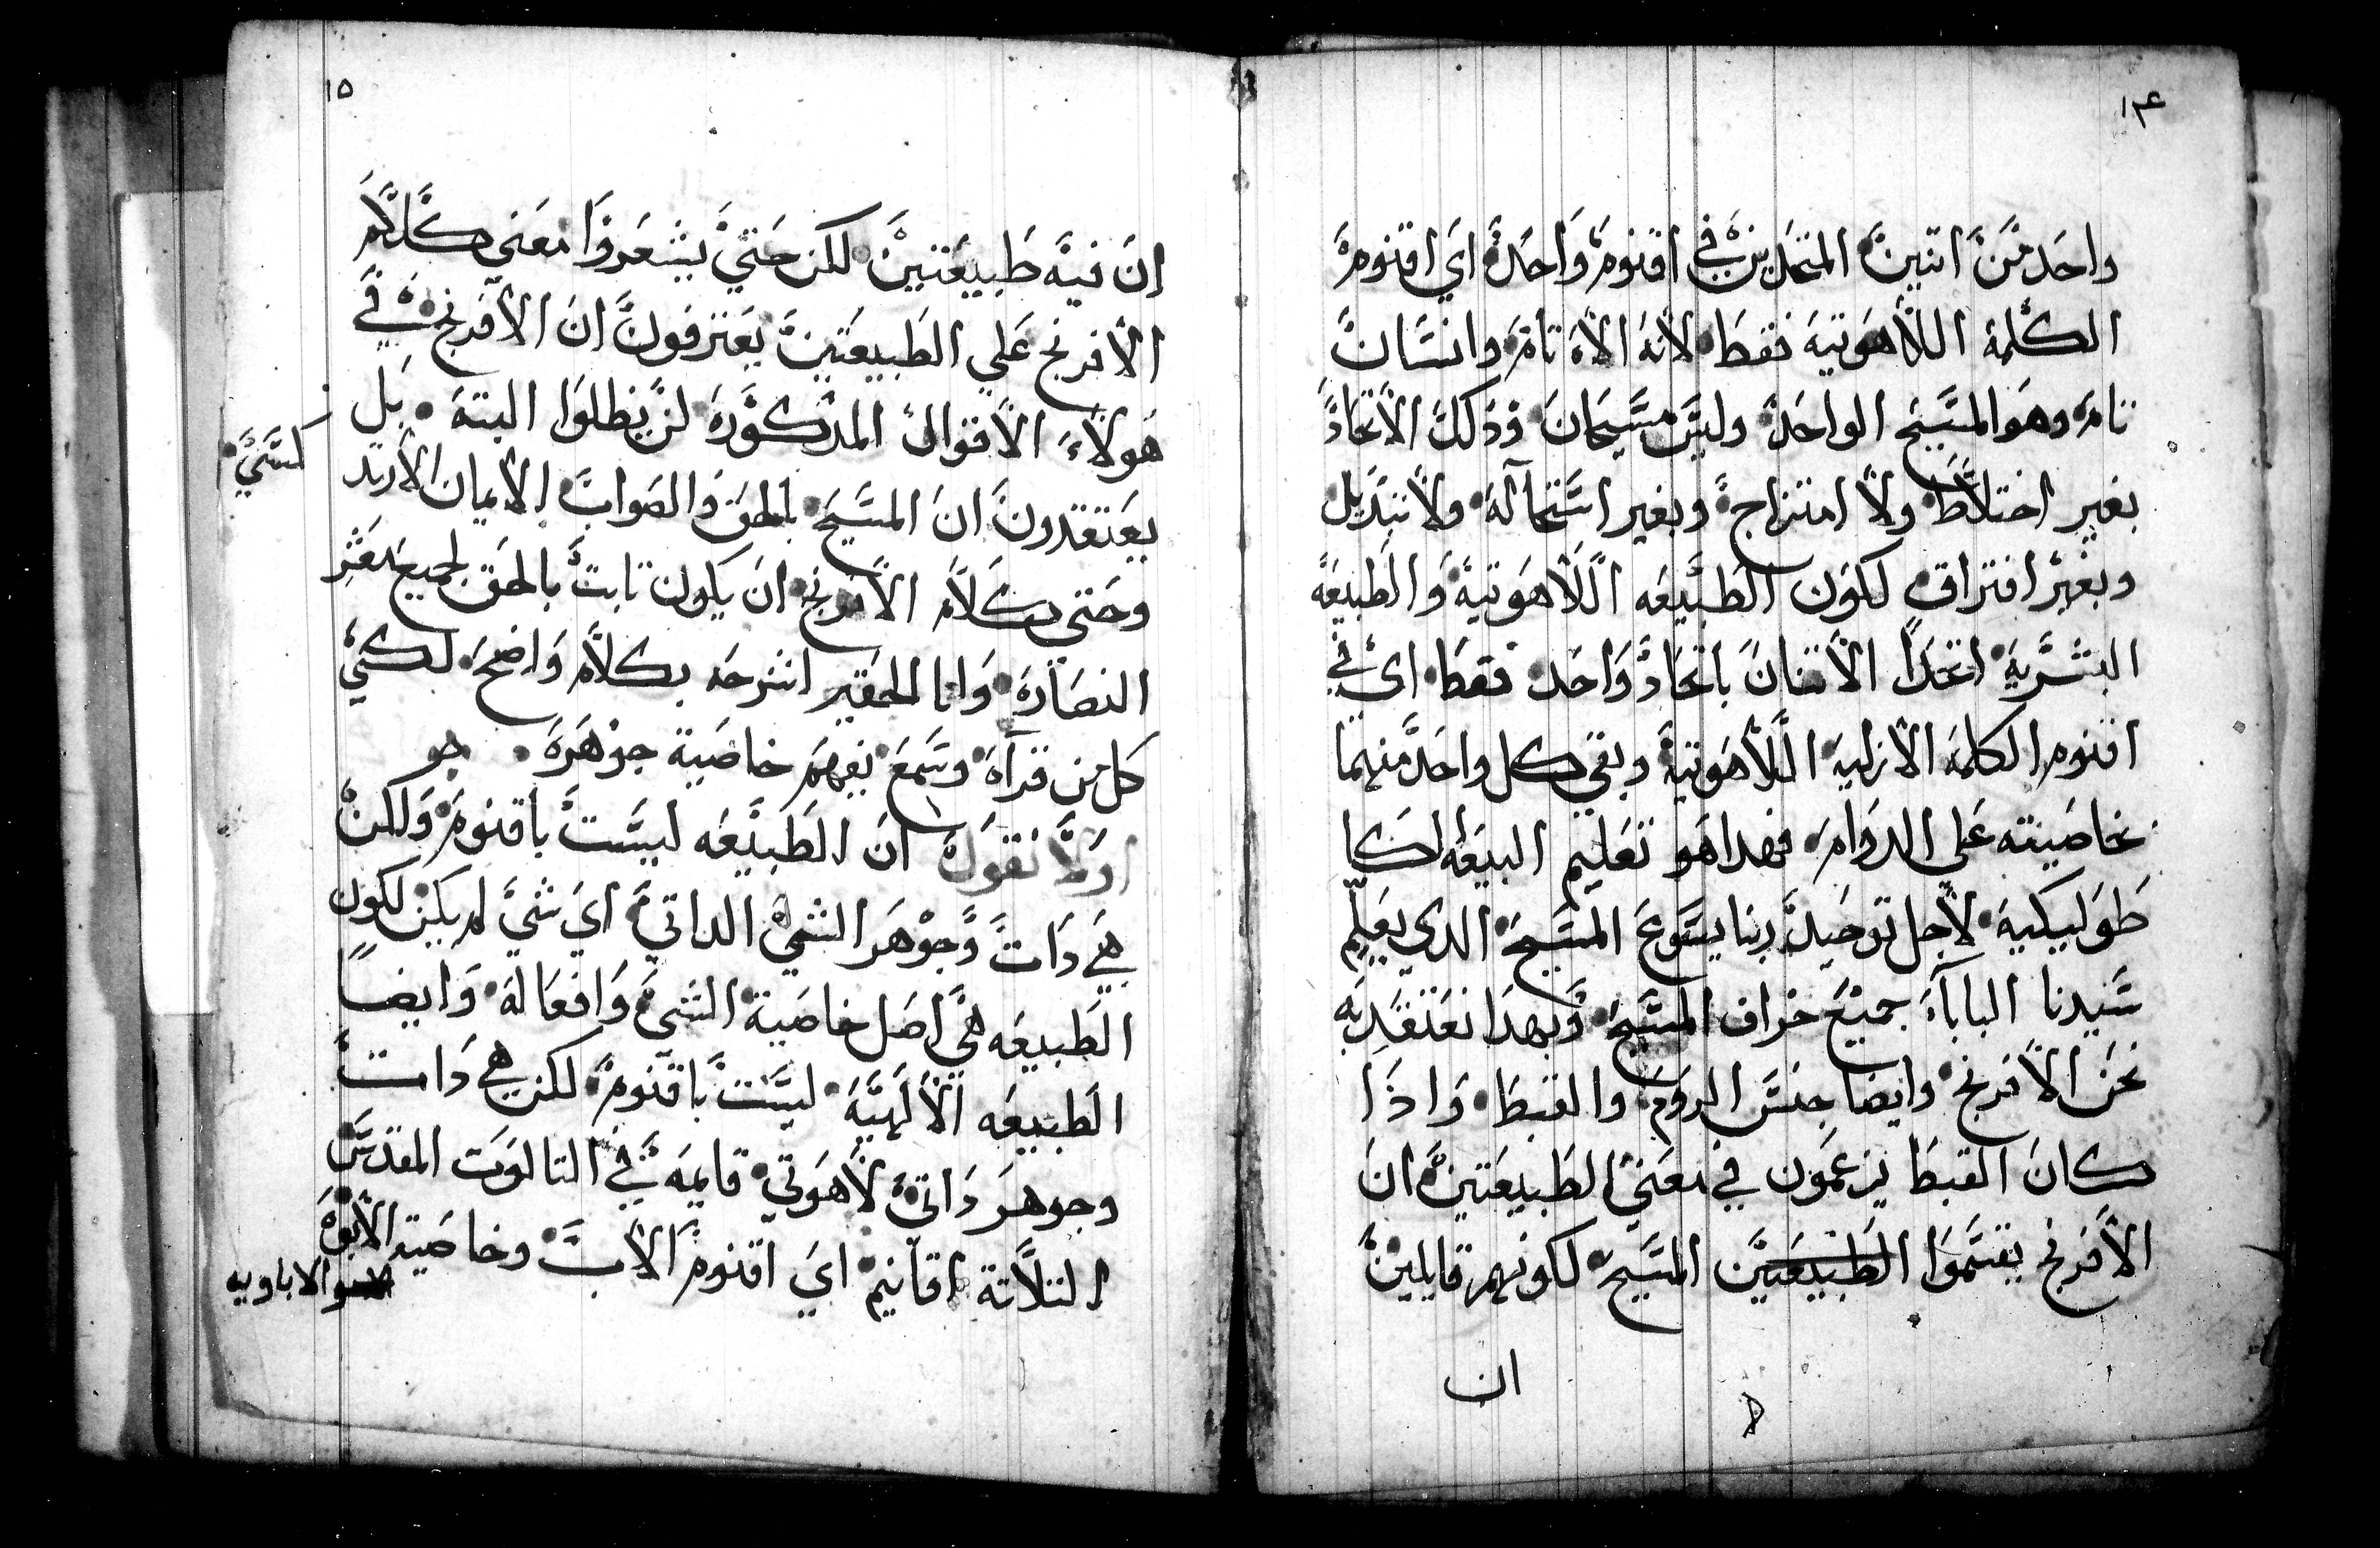 ١٤
واحد من اتنين المتحدين في اقنوم واحد اي اقنوم
الكلمة اللاهوتية فقط لانه الاه تام وانسان
تام وهو المسيح الواحد وليس مسيحان وذلك الاتحاد
بغير اختلاط ولا امتزاج وبغير استحالة ولا تبديل
وبغير افتراق لكون الطبيعه اللاهوتية والطبيعه
البشرية اتحدا الاتنان باتحاد واحد فقط اي في
اقنوم الكلمة الازلية اللاهوتية وبقي كل واحد منهما
بخاصيته على الدوام فهدا هو تعليم البيعه الكا
طوليكية لاجل توحيد ربنا يسوع المسيح الدي يعلم
سيدنا الباباء جميع خراف المسيح وبهدا نعتقد به
نحن الافرنج وايضا جنس الروم والقبط واذا
كان القبط يزعمون في معني الطبيعتين ان
الافرنج يقسموا الطبيعتين المسيح لكونهم قايلين
ان
١٥
ان فيه طبيعتين لكن حتي يشعروا معني كلام
الافرنج علي الطبيعتين يعترفون ان الافرنج في
هولاء الاقوال المدكورة لن يظلوا البتة بل
يعتقدون ان المسيح بالحق والصواب الايمان
وحتى كلام الافرنج ان يكون تابت بالحق لجميع
النصارة وانا الحقير اشرحه بكلام واضح لكي
كل من قراه وسمع يفهم خاصية جوهره جو
اولا نقول ان الطبيعه ليست باقنوم ولكن
هي دات وجوهر الشي الداتي اي شي لم يكن لكون
الطبيعه هي اصل خاصية الشي وافعاله وايضا
الطبيعه الالهية ليست باقنوم لكن هي دات
وجوهر داتي لاهوتي قايمه في التالوت المقدس
التلاتة اقانيم اي اقنوم الاب وخاصية الابوة
الاباويه